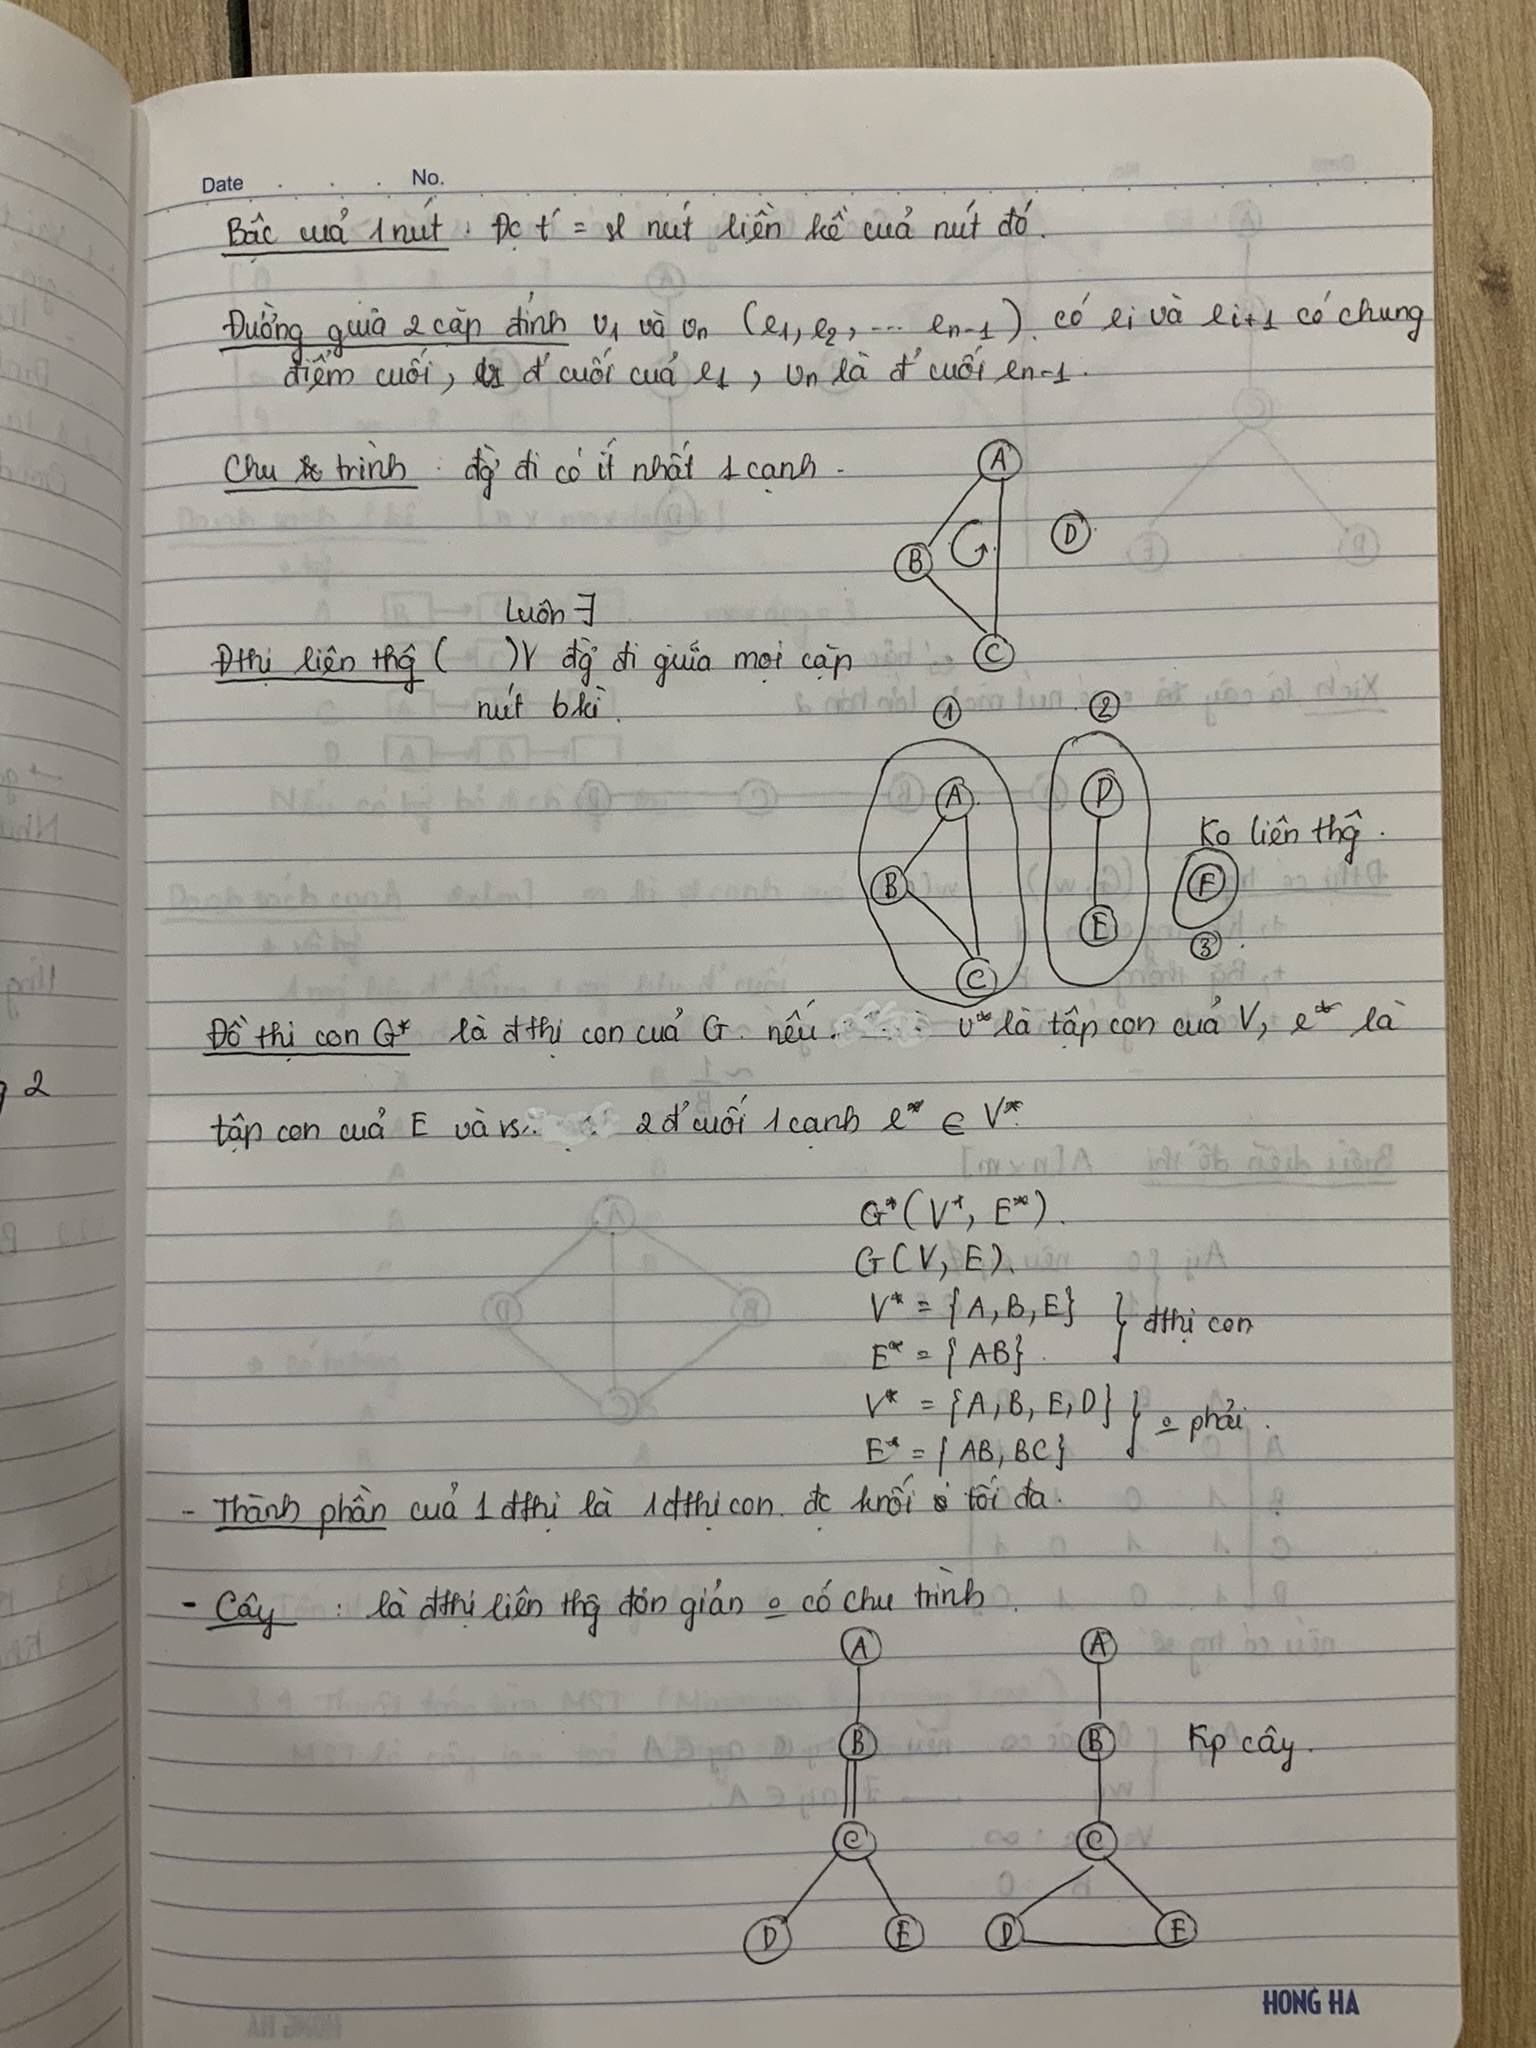 Date . . . No.
Bậc của 1 nút : Đc t/ = sl nút liền kề của nút đó.
Đường giữa 2 cặp đỉnh v1 và vn (e1, e2, ... en-1). có ei và ei+1 có chung
điểm cuối, đ' cuối của e1, vn là đ' cuối en-1.
Chu trình : đg` đi có ít nhất 1 cạnh.
A
B
D
C
Luôn ∃
Đthị liên thg ( )V đg` đi giữa mọi cặp
nút bkì.
① ②
A D
Ko liên thg.
B F
E
③
C
Đồ thị con G* là đthị con của G nếu v* là tập con của V, e* là
tập con của E và 2 đ' cuối 1 cạnh e* ∈ V*.
G*(V*, E*).
G(V, E).
V* = {A, B, E}
đthị con
E* = {AB}.
V* = {A, B, E, D}
o phải.
E* = {AB, BC}
- Thành phần của 1 đthị là 1 đthị con. đc knối tối đa.
- Cây : là đthị liên thg đơn giản o có chu trình.
A A
B B Kp cây.
C C
D E D E
HONG HA